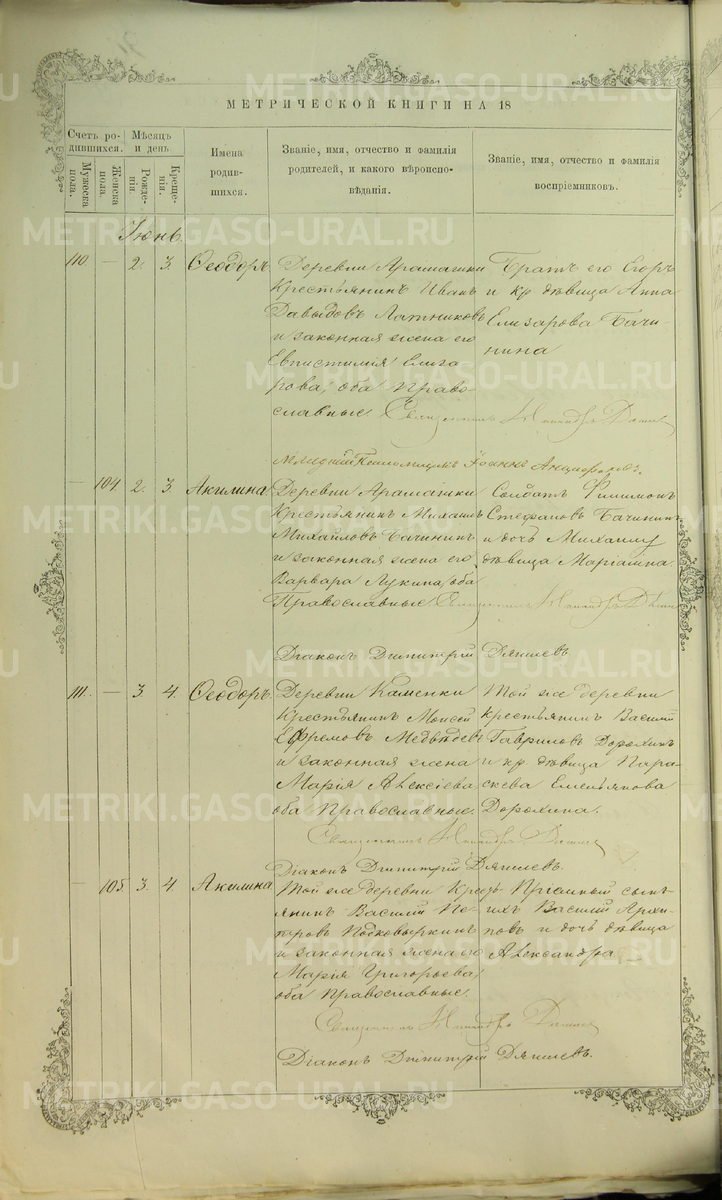 МЕТРИЧЕСКОЙ КНИГИ НА 18
Счетъ ро-
дившихся.
Мѣсяцъ
и день
Мужеска
пола.
Женска
пола.
Рожде-
нія.
Креще-
нія.
Имена
родив-
шихся.
Званіе, имя, отчество и фамилія
родителей, и какого вѣроиспо-
вѣданія.
Званіе, имя, отчество и фамилія
воспріемниковъ.
Іюнь
110 — 2. 3 Ѳеодоръ
Деревни Арамашки
Крестьянинъ Иванъ
Давыдовъ Латниковъ
и законная жена его
Евпистимія Елиза
рова, оба Право-
славные. Священникъ
Братъ его Егоръ
и кр. дѣвица Анна
Елизарова Бачи-
нина
Іоаннъ
— 104 2. 3. Акилина
Деревни Арамашки
Крестьянинъ Михаилъ
Михайловъ Бачининъ
и законная жена его
Варвара Лукина, оба
Православные Священникъ
Солдатъ Филимонъ
Стефановъ Бачининъ
и дочь Михаилу
дѣвица Маріамна
Діаконъ Димитрій
111. — 3 4. Ѳеодоръ.
Деревни Каменки
Крестьянинъ Моисей
Ефремовъ Медвѣдевъ
и законная жена
Марія Алексіева
оба Православные.
Священникъ
Той же деревни
крестьянинъ Василій
Гавриловъ Дорохинъ
и кр. дѣвица Пара-
скева Емельянова
Дорохина.
Діаконъ Димитрій
— 105. 3. 4 Акилина
Той же деревни Кресть
янинъ Василій Пе-
тровъ Подковыркинъ
и законная жена его
Марія Григорьева
оба Православные.
Священникъ
Пріемный сынъ
ихъ Василій Архи-
повъ и дочь дѣвица
Александра
Діаконъ Димитрій
METRIKI.GASO-URAL.RU